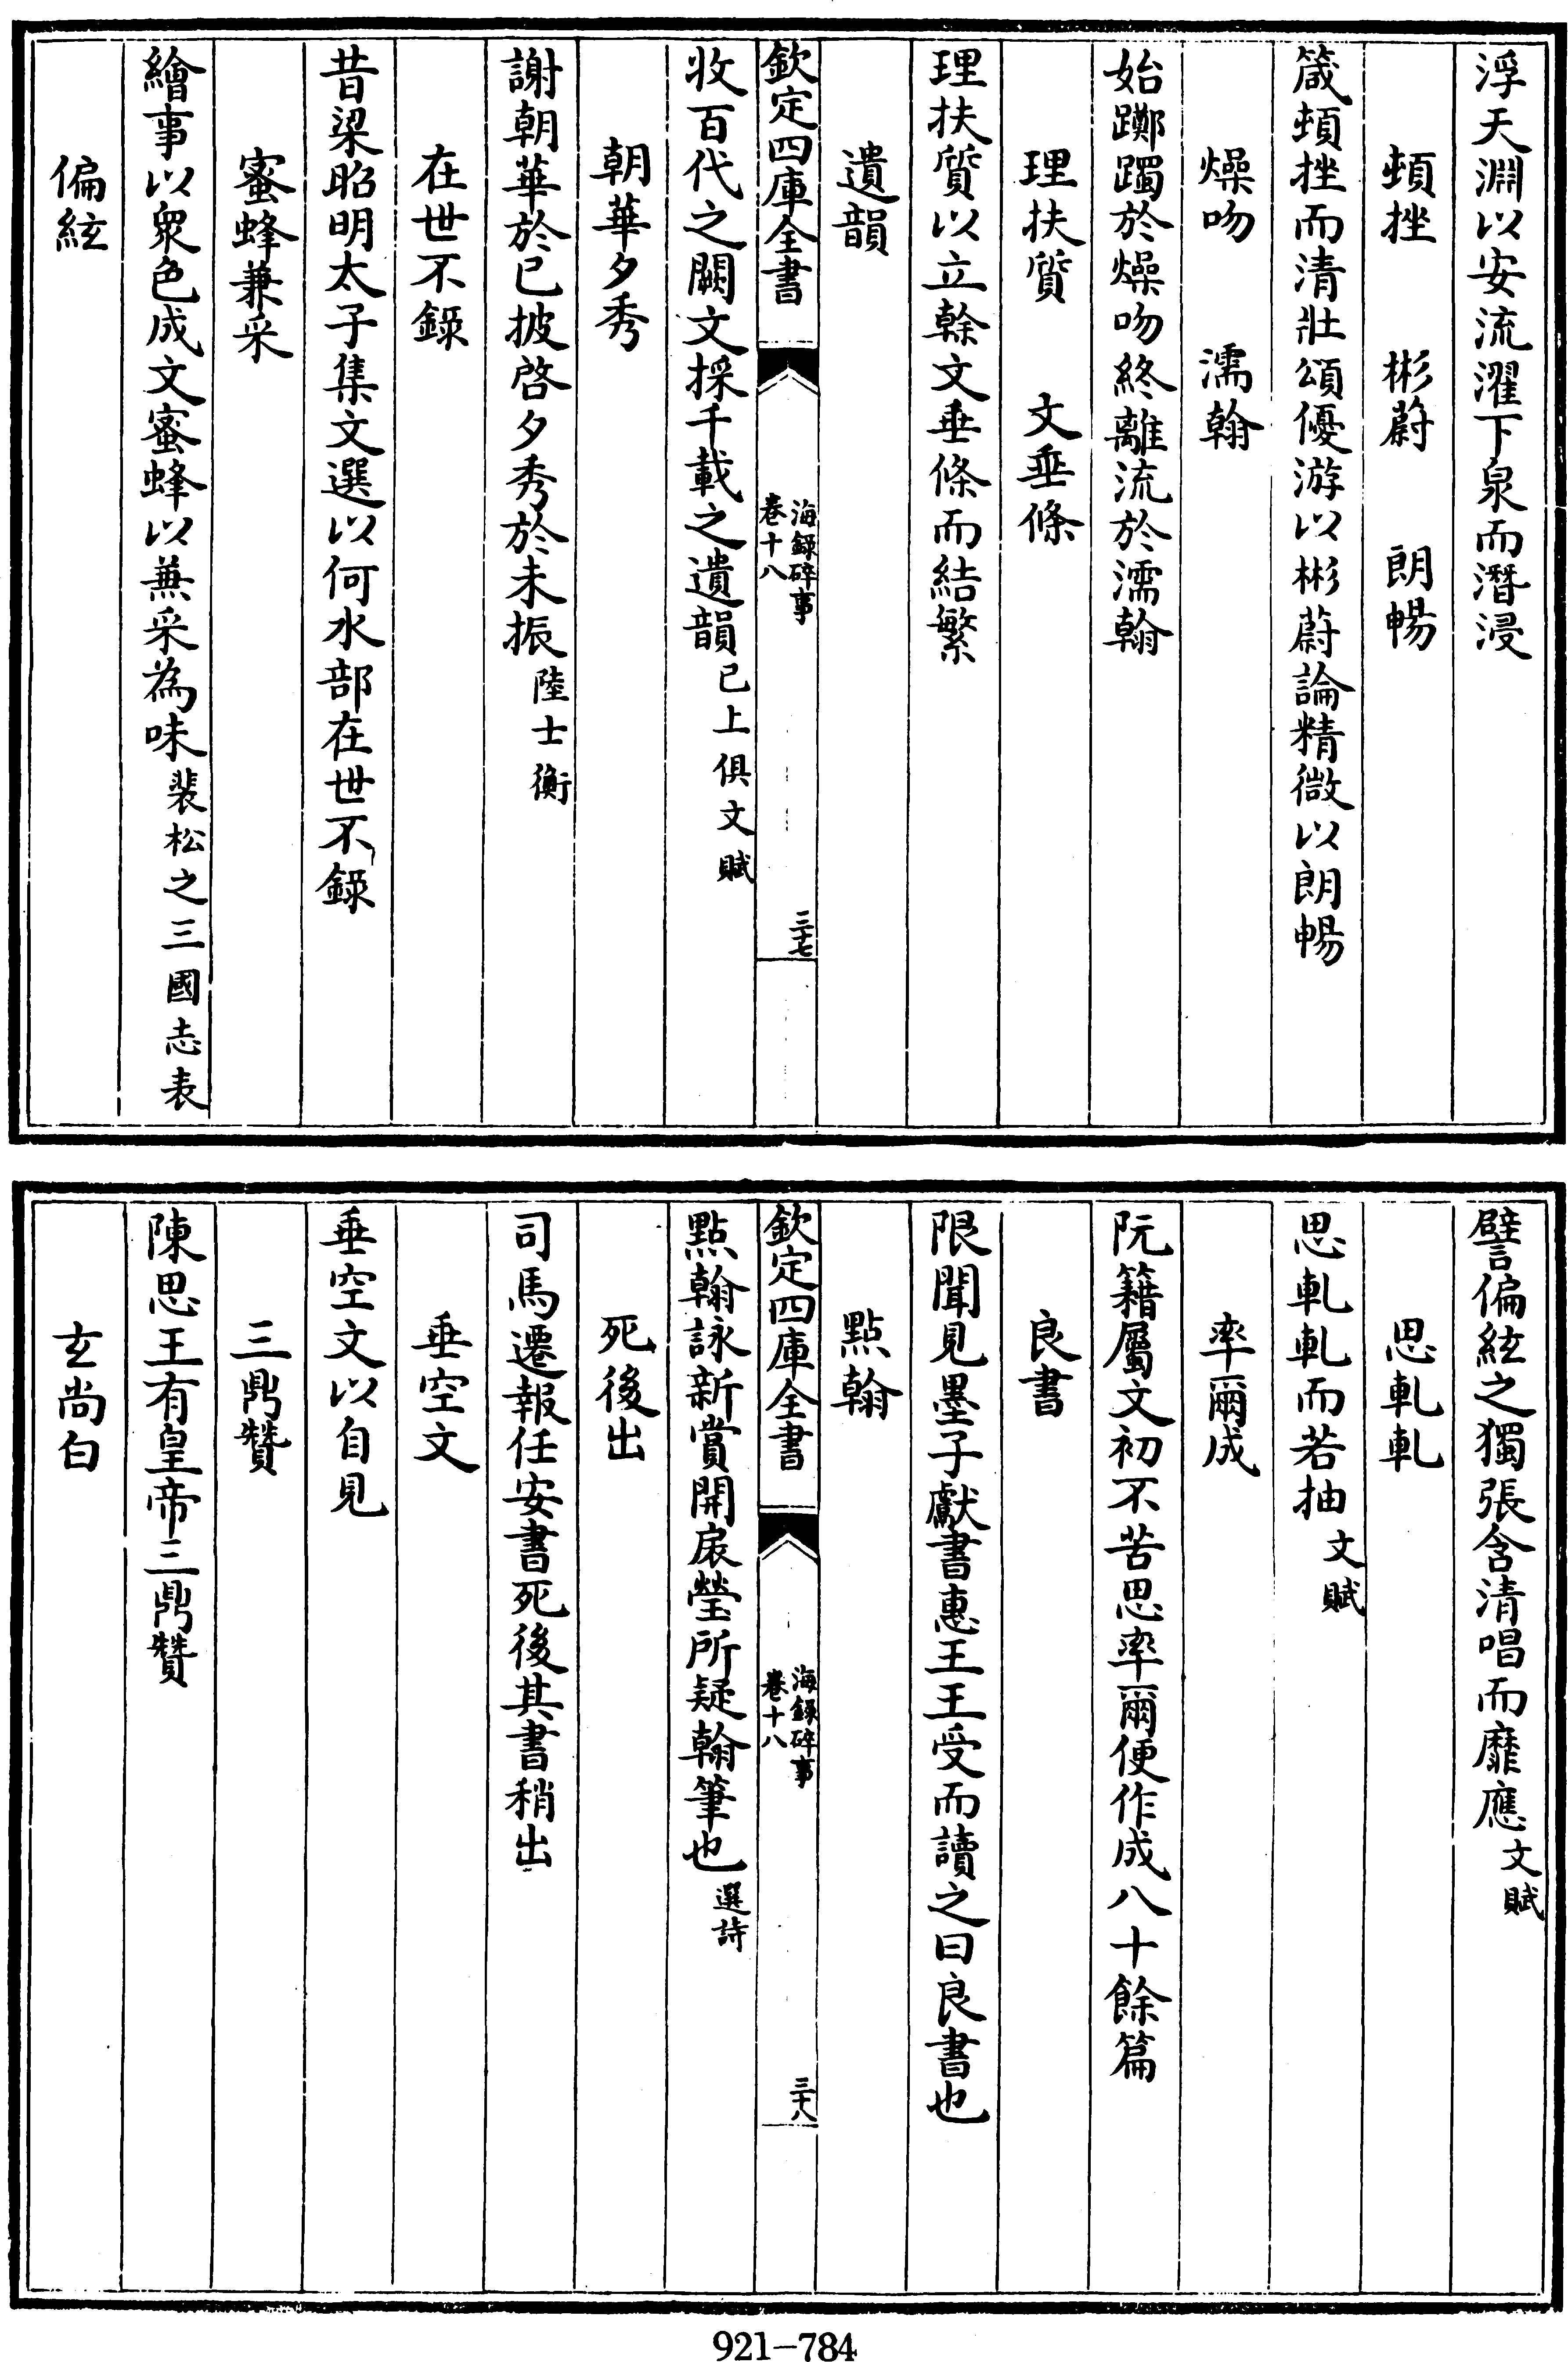 浮天淵以安流濯下泉而潛浸
頓挫　彬蔚　朗暢
箴頓挫而清壯頌優游以彬蔚論精微以朗暢
燥吻　濡翰
始躑躅於燥吻終離流於濡翰
理扶質　文垂條
理扶質以立幹文垂條而結繁
遺韻
欽定四庫全書
海錄碎事
卷十八
三十七
收百代之闕文採千載之遺韻已上俱文賦
朝華夕秀
謝朝華於已披啓夕秀於未振陸士衡
在世不錄
昔梁昭明太子集文選以何水部在世不錄
蜜蜂兼采
繪事以衆色成文蜜蜂以兼采為味裴松之三國志表
偏絃
譬偏絃之獨張含清唱而靡應文賦
思軋軋
思軋軋而若抽文賦
率爾成
阮籍屬文初不苦思率爾便作成八十餘篇
良書
限聞見墨子獻書惠王王受而讀之曰良書也
點翰
欽定四庫全書
海錄碎事
卷十八
三十八
點翰詠新賞開袠瑩所疑翰筆也選詩
死後出
司馬遷報任安書死後其書稍出
垂空文
垂空文以自見
三鼎贊
陳思王有皇帝三鼎贊
玄尚白
921-784